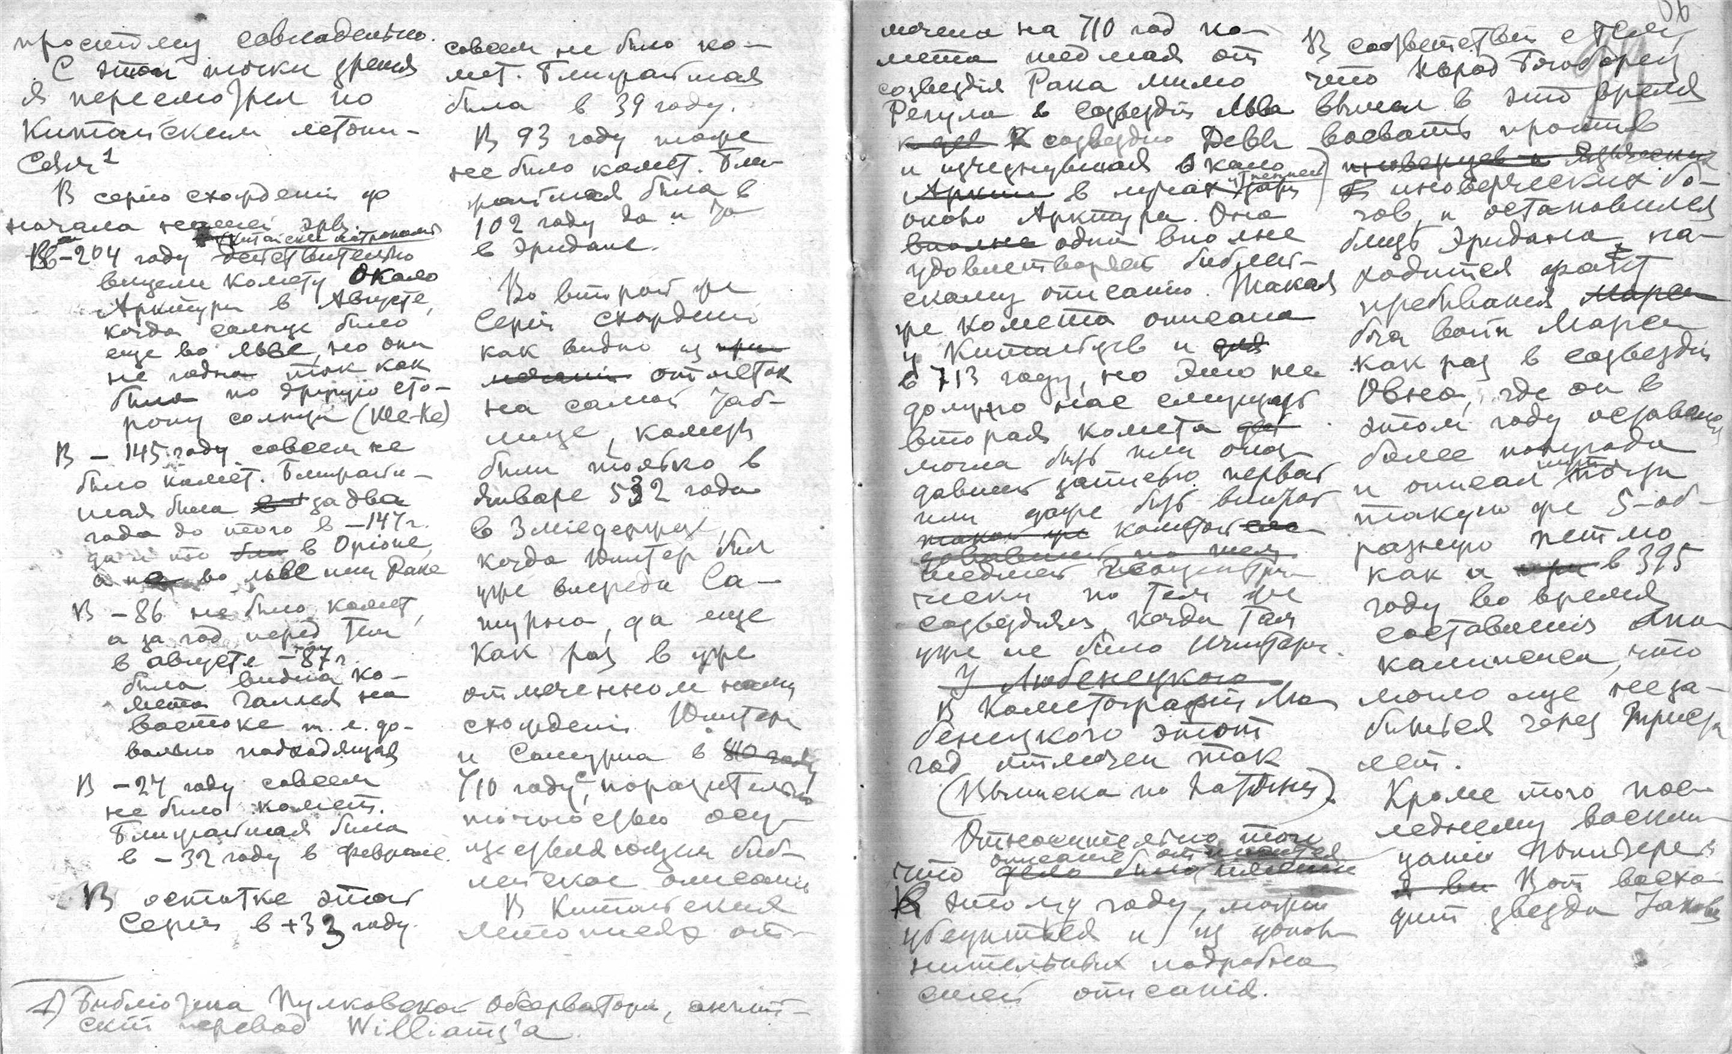 простому совпадению.
С этой точки зрения
я пересмотрел по
Китайским летопи-
сям 1
В серію схожденій до
начала нашей эры
В -204 году Китайскіе астрономы действительно
видели комету около
Арктура в Августе,
когда солнце было
еще во Льве, но она
не годна так как
была по другую сто-
рону солнца (Ше-Ке)
В -145 году совсем не
было комет. Ближайшая
была за два
года до того в -147 г.
да и то в Оріоне,
а не во Льве или Раке
В -86 не было комет,
а за год перед тем
в августе -87 г.
была видна ко-
мета Галлея на
востоке т. е. до-
вольно подходящая
В -27 году совсем
не было комет.
Ближайшая была
в -32 году в феврале.
В остатке этой
серіи в +33 году.
1) Библіотека Пулковской Обсерваторіи, англій-
скій перевод Williams'а.
совсем не было ко-
мет. Ближайшая
была в 39 году.
В 93 году тоже
не было комет. Бли-
жайшая была в
102 году да и то
в Эридане.
Во второй же
серіи схожденій
как видно из
отметок
на самой таб-
лице, кометы
были только в
Январе 532 года
в Змиедержце,
когда Юпитер был
уже впереди Са-
турна, да еще
как раз в уже
отмеченном нами
схожденіи Юпитера
и Сатурна в
710 году с поразительною
точностью осу-
ществляющем биб-
лейское описаніе
В Китайских
летописях от-
мечена на 710 год ко-
мета шедшая от
созвездія Рака мимо
Регула в созвездіи Льва
к созвездію Девы
и исчезнувшая
в лучах зари
около Арктура. Она
одна вполне
удовлетворяет библей-
скому описанію. Такая
же комета описана
у Китайцев и
в 713 году, но это не
должно нас смущать
вторая комета
могла быть или опоз-
давшей записью первой
или даже быть второй
кометой
шедшей
чески по тем же
созвездіям, когда там
уже не было Юпитера.
У Любенецкого
В Кометографіи Лю-
бенецкого этот
год отмечен так
(Выписка по латыни).
Относительно того
что описаніе относится
к этому году, можно
убедиться и из допол-
нительных подробно-
стей описанія.
В соответствіи с тем,
что Народ Богоборец
вышел в это время
воевать против
иноверческих бо-
гов, и остановился
близь Эридана, на-
ходится факт
пребыванія
бога войны Марса
как раз в созвездіи
Овна, где он в
этом году оставался
более полугода
и описал почти точно
такую же S-об-
разную петлю
как и в 395
году во время
составленія Апо-
калипсиса, что
могло еще не за-
быться через триста
лет.
Кроме того пос-
леднему восклицанію
Вот восхо-
дит звезда Іакова